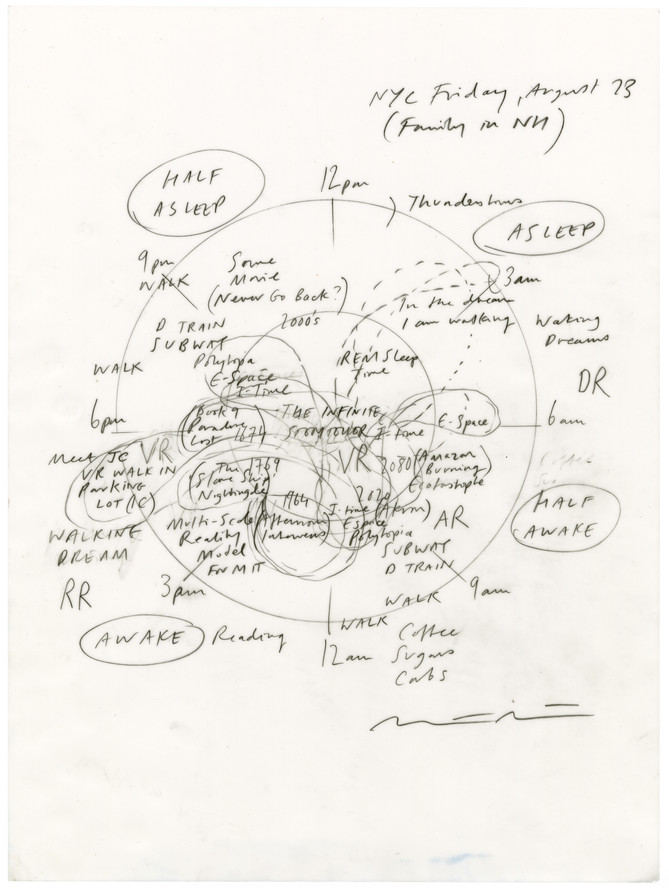 NYC Friday, August 23
(Family in NH)
HALF
ASLEEP
12pm
Thunderstorms
ASLEEP
9pm
WALK
Some
Movie
(Never Go Back?)
3am
In the dream
I am walking
Waking
Dreams
DR
D TRAIN
SUBWAY
2000's
WALK
Polytopia
E-Space
I-Time
REM Sleep
Time
6pm
Book 9
Paradise
Lost 1674
THE INFINITE
STORYTELLER
I-time
E-Space
6am
Meet JC
VR WALK IN
PARKING
LOT (JC)
VR
The 1769
Stone Ship
Nightingale
VR
2080
(Amazon
Burning)
Ecotastrophe
1964
2020
HALF
AWAKE
WALKING
DREAM
Multi-Scale
Reality
Model
FN MIT
(Afternoon
I-time
(Alarm)
E Space
Polytopia
AR
SUBWAY
D TRAIN
RR
3pm
9am
WALK
AWAKE
Reading
WALK
12am
Coffee
Sugars
Carbs